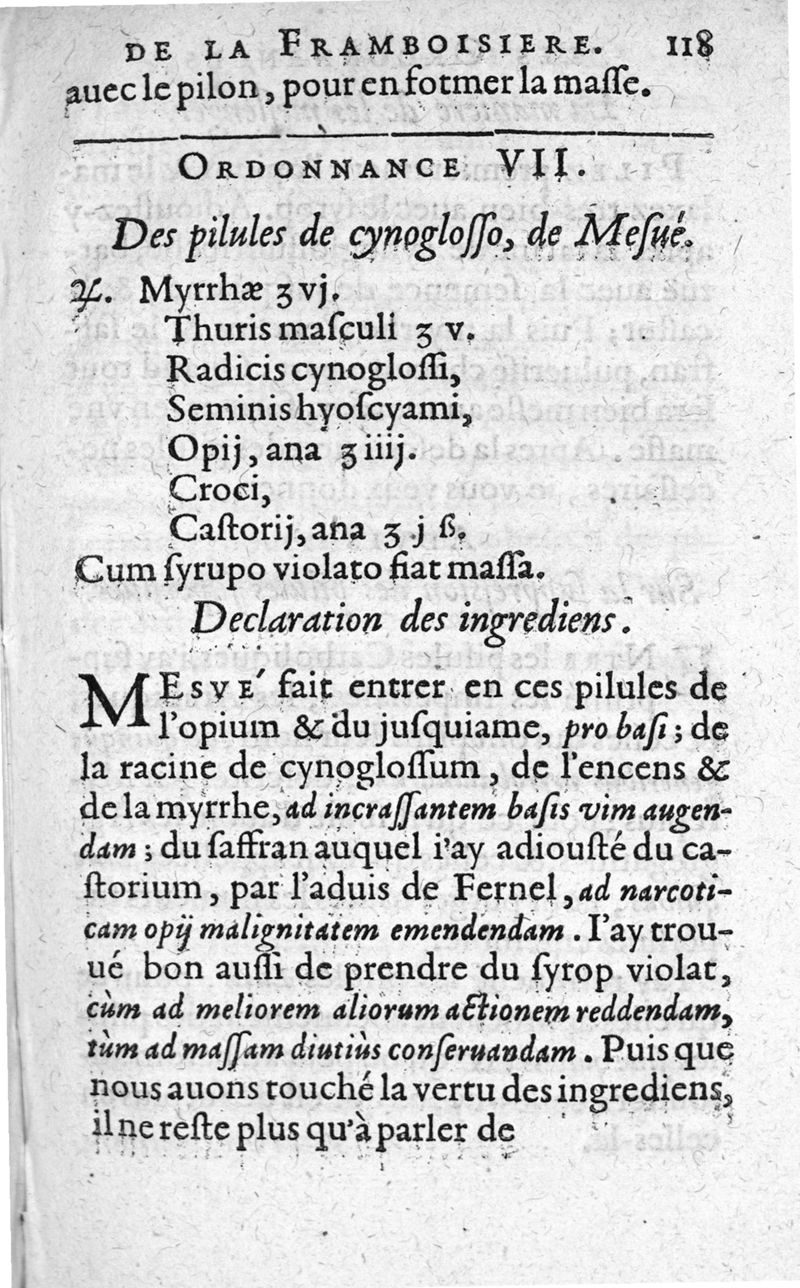 DE LA FRAMBOISIERE. 118
auec le pilon, pour en former la maſſe.
ORDONNANCE VII.
Des pilules de cynogloſſo, de Meſué.
♃. Myrrhæ ʒ vj.
Thuris maſculi ʒ v.
Radicis cynogloſſi,
Seminis hyoſcyami,
Opij, ana ʒ iiij.
Croci,
Caſtorij, ana ʒ j ß.
Cum ſyrupo violato fiat maſſa.
Declaration des ingrediens.
MESVÉ fait entrer en ces pilules de
l'opium & du juſquiame, pro baſi; de
la racine de cynogloſſum, de l'encens &
de la myrrhe, ad incraſſantem baſis vim augen-
dam; du ſaffran auquel i'ay adiouſté du ca-
ſtorium, par l'aduis de Fernel, ad narcoti-
cam opij malignitatem emendendam. I'ay trou-
ué bon auſſi de prendre du ſyrop violat,
cùm ad meliorem aliorum actionem reddendam,
tùm ad maſſam diutiùs conſeruandam. Puis que
nous auons touché la vertu des ingrediens,
il ne reſte plus qu'à parler de